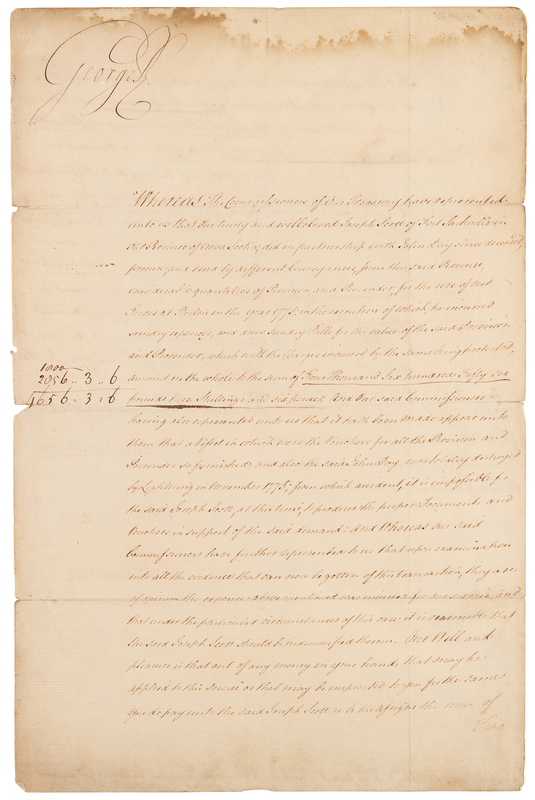 George R
Whereas The Commissioners of Our Treasury have represented
unto us that Our trusty and welbeloved Joseph Scott of Fort Sackville in
Our Province of Nova Scotia, did in partnership with John Day since deceased,
procure and send by different Conveyances, from the said Province,
considerable quantities of Provision and Provender, for the use of Our
Forces at Boston in the year 1775 in the execution of which, he incurred
sundry expences, and drew sundry Bills for the value of the said Provision
and Provender, which with the Charges incurred by the same being protested,
1000
2956 .. 3 .. 6
amount in the whole to the sum of Four Thousand Six hundred Fifty Six
4656 .. 3 .. 6
pounds three Shillings and six pence; And Our said Commissioners
having also represented unto us that it hath been made appear unto
them that a Vessel in which were the Vouchers for all the Provision and
Provender so furnished and also the said John Day, was totally destroyed
by Lightning in November 1775; from which accident, it is impossible for
the said Joseph Scott, at this time, to produce the proper Documents and
Vouchers in support of the said demand: And Whereas Our said
Commissioners have further represented to us that upon examination
into all the evidence that can now be gotten of this transaction, they are
of opinion the expence abovementioned was incurred for our service and
that under the particular circumstances of this case it is reasonable that
the said Joseph Scott should be indemnified therein. Our Will and
pleasure is that out of any money in your hands that may be
applied to this service or that may be imprested to you for the same
you do pay unto the said Joseph Scott or to his Assigns the sum of